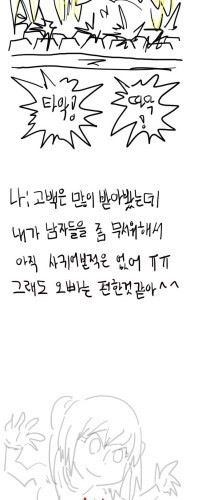 타악!
따악!
나; 고백은 많이 받아봤는데
내가 남자들을 좀 무서워해서
아직 사귀어본적은 없어 ㅠㅠ
그래도 오빠는 편한것같아^^